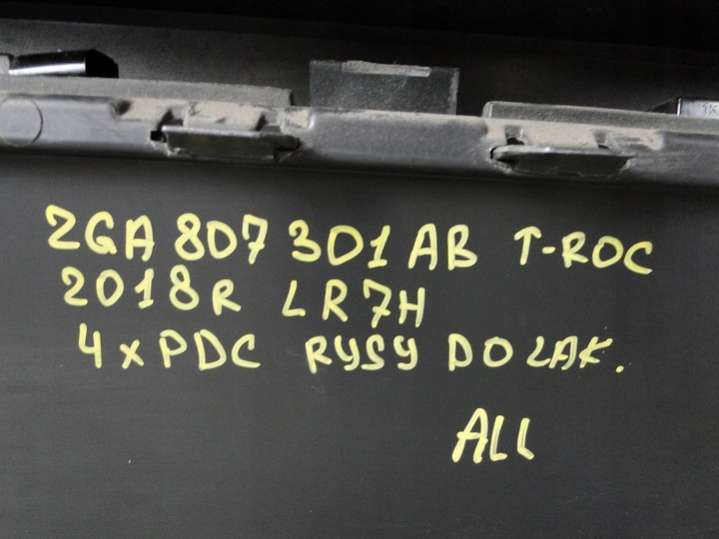 2GA 807 301 AB T-ROC
2018R LR7H
4xPDC RYSY DO LAK.
ALL